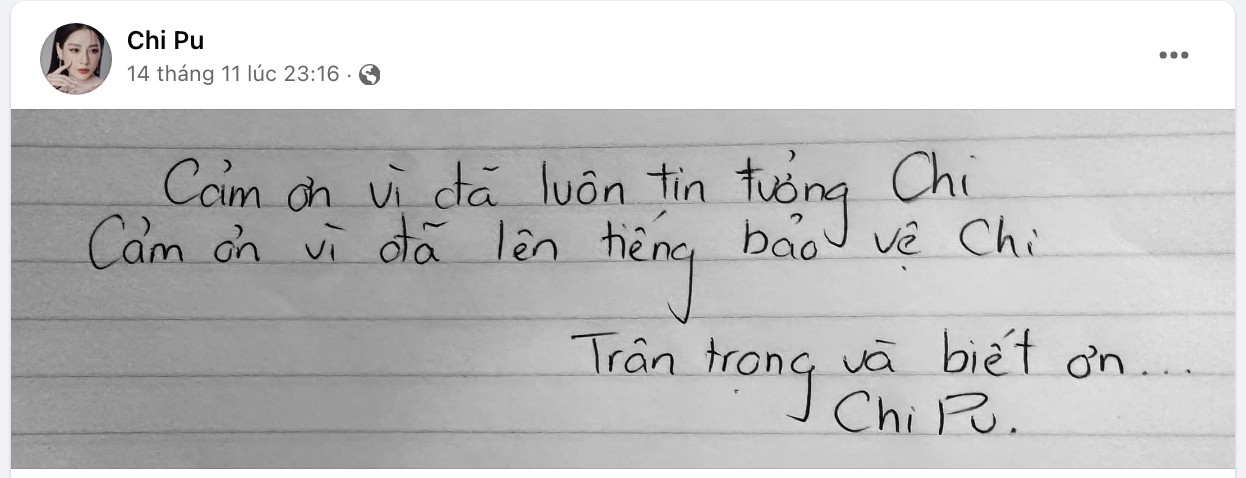 Chi Pu
14 tháng 11 lúc 23:16
Cảm ơn vì đã luôn tin tưởng Chi
Cảm ơn vì đã lên tiếng bảo vệ Chi
Trân trọng và biết ơn...
Chi Pu.